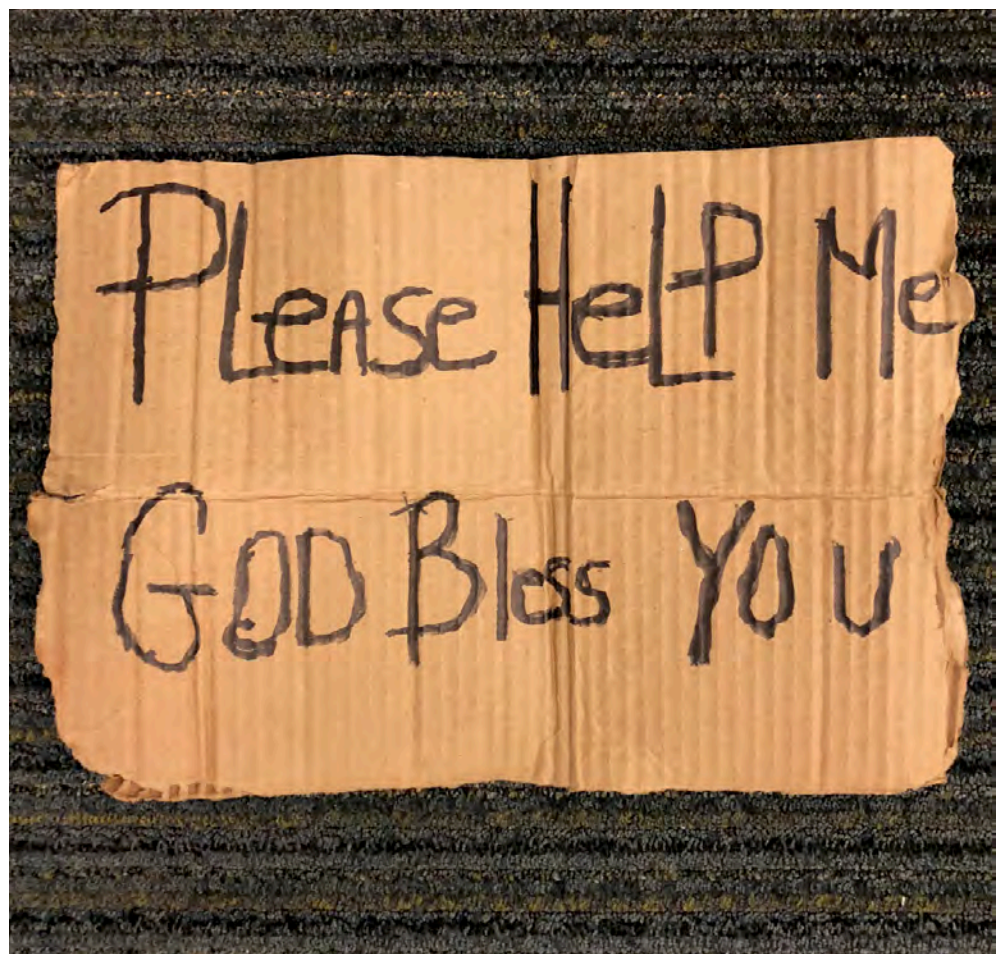 PLeASe HeLP Me
GOD Bless YOU